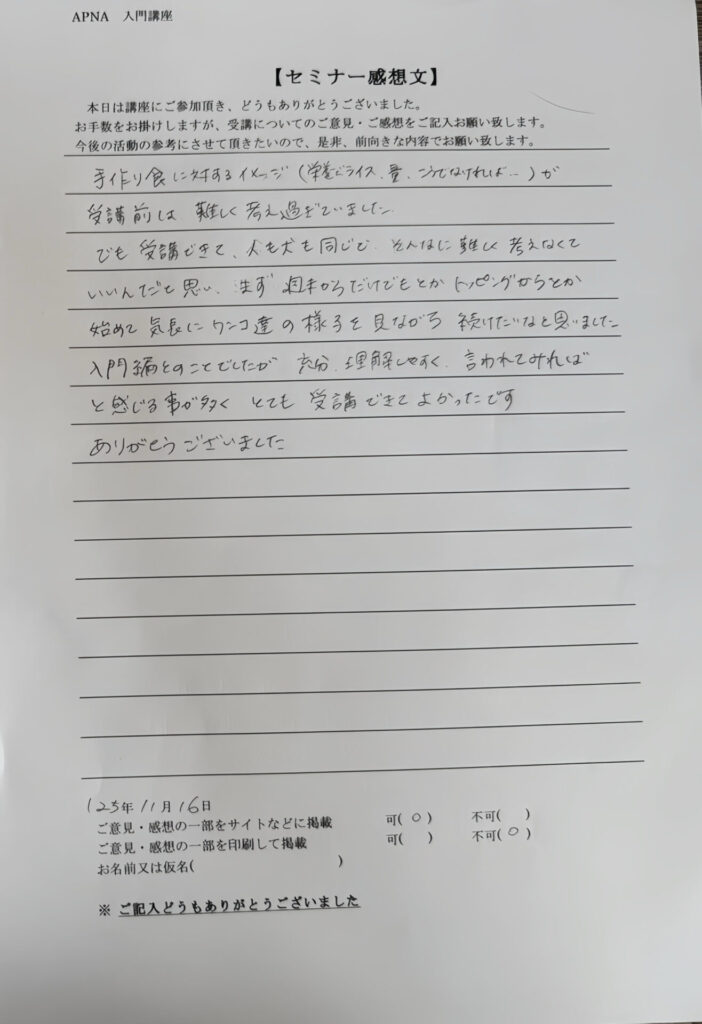 APNA 入門講座
【セミナー感想文】
本日は講座にご参加頂き、どうもありがとうございました。
お手数をお掛けしますが、受講についてのご意見・ご感想をご記入お願い致します。
今後の活動の参考にさせて頂きたいので、是非、前向きな内容でお願い致します。
手作り食に対するイメージ(栄養バランス、量、こうでなければ…)が
受講前は 難しく考え過ぎていました
でも 受講できて、人も犬も同じで、そんなに難しく考えなくて
いいんだと思い、まず 週末からだけでもとか トッピングからとか
始めて 気長に ワンコ達の様子を見ながら 続けたいなと思いました
入門編とのことでしたが 充分、理解しやすく、言われてみれば
と感じる事が多く とても 受講できてよかったです
ありがとうございました
'25年 11月 16日
ご意見・感想の一部をサイトなどに掲載 可(○) 不可( )
ご意見・感想の一部を印刷して掲載 可( ) 不可(○)
お名前又は仮名( )
※ ご記入どうもありがとうございました